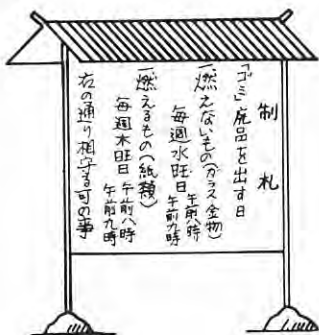 制札
「ゴミ」廃品を出す日
一、燃えないもの(ガラス金物)
毎週水旺日 午前八時
午前九時
一、燃えるもの(紙類)
毎週木旺日 午前八時
午前九時
右の通り相守る可の事